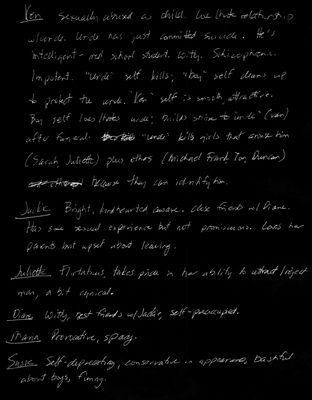 Ken Sexually abused as child. Love/hate relationship
w/uncle. Uncle has just committed suicide. He's
intelligent - med school student. Witty. Schizophrenic.
Impotent. "Uncle" self kills; "boy" self cleans up
to protect the uncle. "Ken" self is smooth, attractive.
Boy self loves/hates uncle; builds shrine to "uncle" (van)
after funeral. "Uncle" kills girls that arouse him
(Sarah, Juliette) plus others (Michael, Frank, Tom, Duncan)
because they can identify him.
Jackie Bright, kindhearted, aware. Close friends w/ Diane.
Has some sexual experience but not promiscuous. Loves her
parents but upset about leaving.
Juliette Flirtatious, takes pride in her ability to attract/reject
men, a bit cynical.
Diane Witty, best friends w/Jackie, self-preoccupied.
Maria Provocative, spacy.
Susie Self-deprecating, conservative in appearance, bashful
about boys, funny.